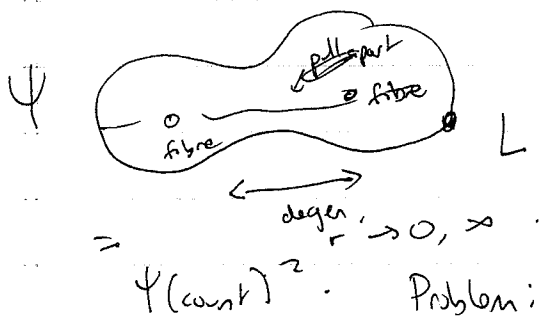 pull apart
Ψ
fibre
fibre
L
degen.
= r → 0, ∞.
Ψ(count)². Problem: